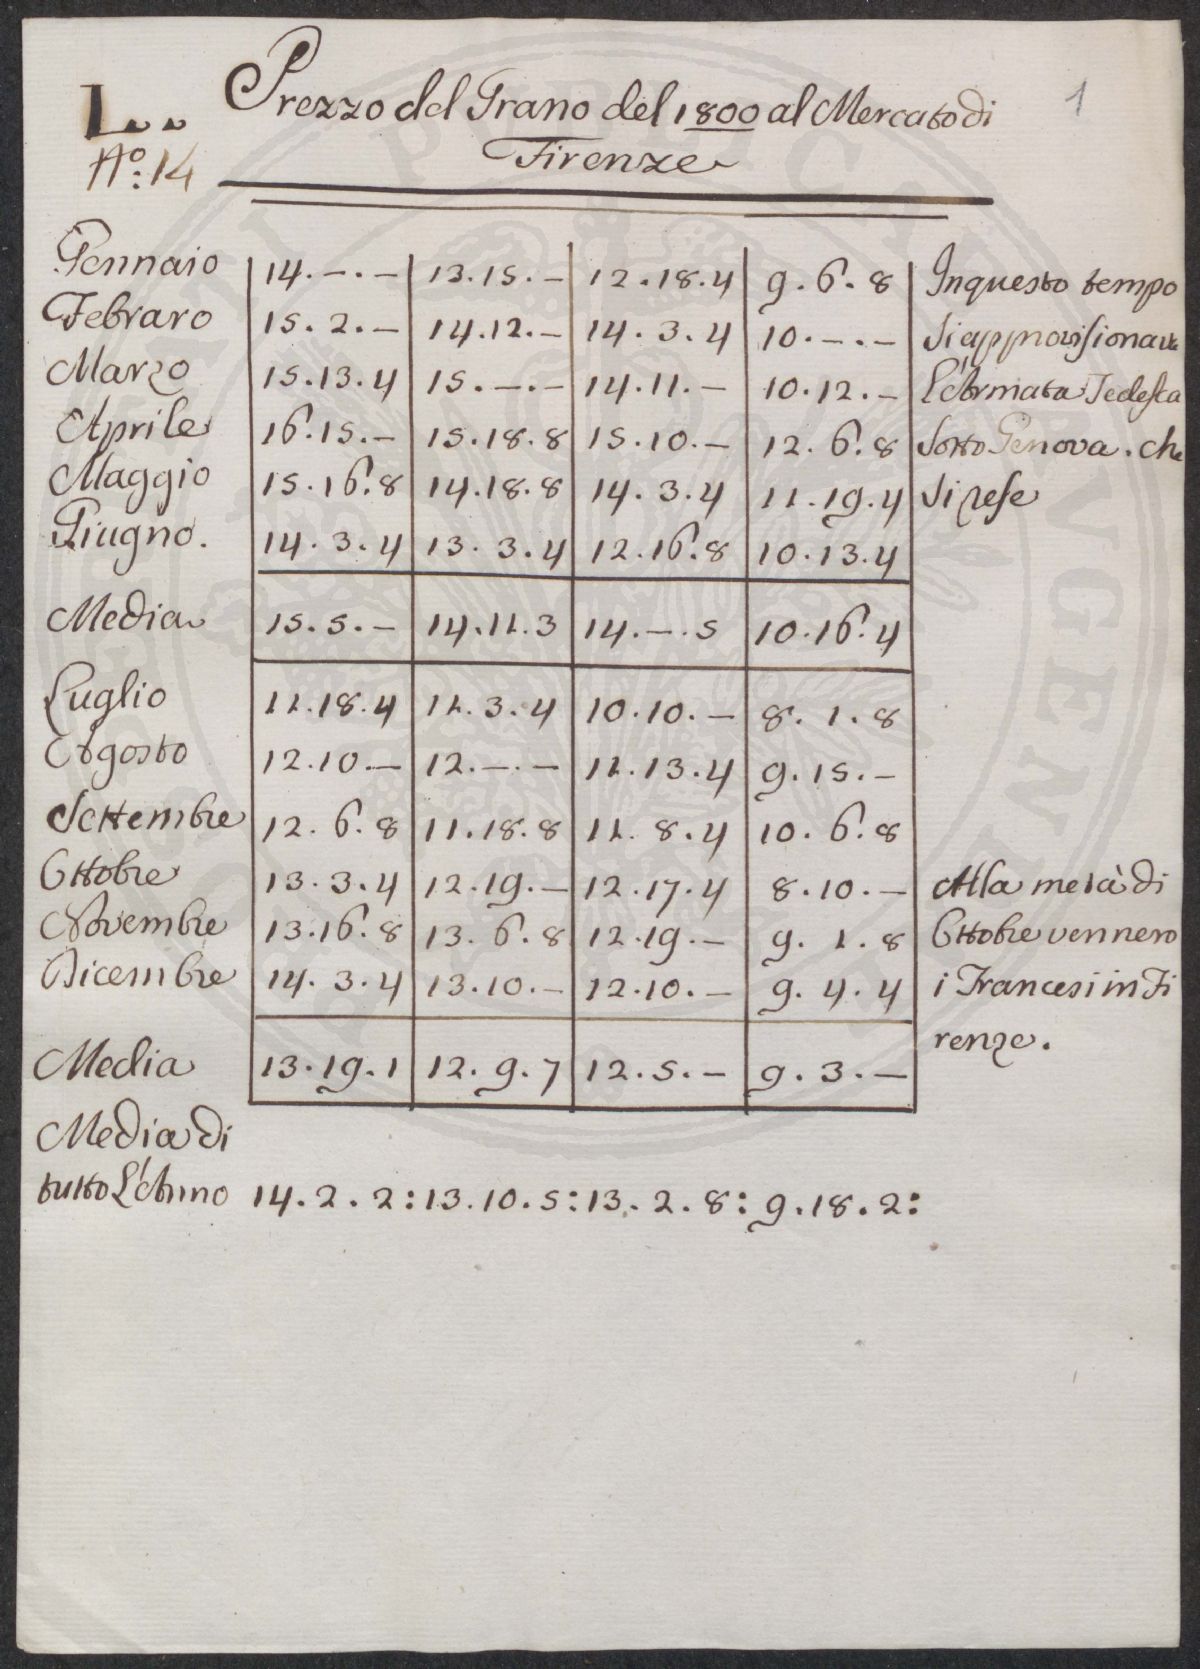 L..
N°: 14
1
Prezzo del Grano del 1800 al Mercato di
Firenze
Gennaio 14.–.– 13.15.– 12.18.4 9.6.8 In questo tempo
Febraro 15.2.– 14.12.– 14.3.4 10.–.– si approvisionava
Marzo 15.13.4 15.–.– 14.11.– 10.12.– L'Armata Tedesca
Aprile 16.15.– 15.18.8 15.10.– 12.6.8 sotto Genova. che
Maggio 15.16.8 14.18.8 14.3.4 11.19.4 si rese
Giugno. 14.3.4 13.3.4 12.16.8 10.13.4
Media 15.5.– 14.11.3 14.–.5 10.16.4
Luglio 11.18.4 11.3.4 10.10.– 8.1.8
Agosto 12.10.– 12.–.– 11.13.4 9.15.–
Settembre 12.6.8 11.18.8 11.8.4 10.6.8
Ottobre 13.3.4 12.19.– 12.17.4 8.10.– Alla metà di
Novembre 13.16.8 13.6.8 12.19.– 9.1.8 Ottobre vennero
Dicembre 14.3.4 13.10.– 12.10.– 9.4.4 i Francesi in Fi
renze.
Media 13.19.1 12.9.7 12.5.– 9.3.–
Media di
tutto L'Anno 14.2.2: 13.10.5: 13.2.8: 9.18.2: